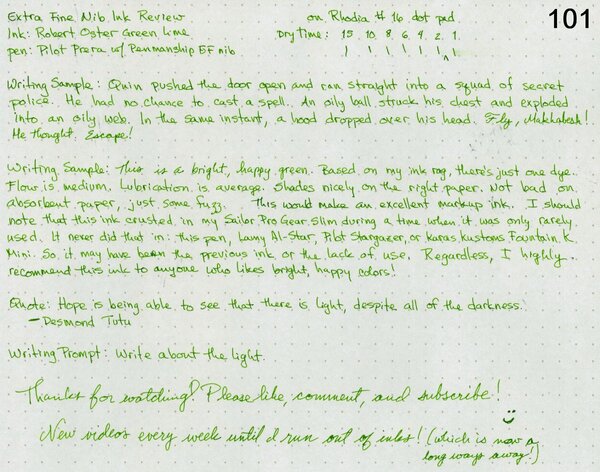 Extra Fine Nib Ink Review on Rhodia #16 dot pad. 101
Ink: Robert Oster Green Lime Dry time: 15 10 8 6 4 2 1
pen: Pilot Prera w/ Penmanship EF nib
Writing Sample: Quin pushed the door open and ran straight into a squad of secret
police. He had no chance to cast a spell. An oily ball struck his chest and exploded
into an oily web. In the same instant, a hood dropped over his head. Fly, Makkabesh!
He thought. Escape!
Writing Sample: This is a bright, happy green. Based on my ink rag, there's just one dye.
Flow is medium. Lubrication is average. Shades nicely on the right paper. Not bad on
absorbent paper, just some fuzz. This would make an excellent markup ink. I should
note that this ink crusted in my Sailor Pro Gear Slim during a time when it was only rarely
used. It never did that in this pen, Lamy Al-Star, Pilot Stargazer, or Karas Kustoms Fountain K
Mini. So it may have been the previous ink or the lack of use. Regardless, I highly
recommend this ink to anyone who likes bright, happy colors!
Quote: Hope is being able to see that there is light, despite all of the darkness.
—Desmond Tutu
Writing Prompt: Write about the light.
Thanks for watching! Please like, comment, and subscribe!
New videos every week until I run out of inks! (which is now a
long ways away!)